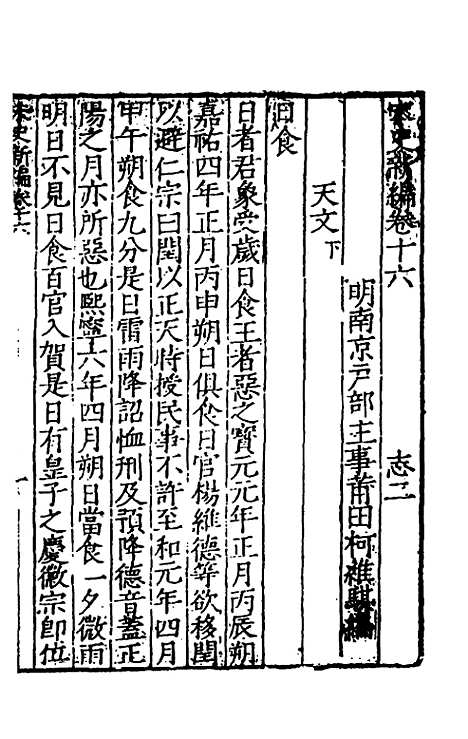 宋史新編卷十六 志二
明南京戶部主事莆田柯維騏編
天文下
日食
日者君象受歲日食王者惡之寶元元年正月丙辰朔
嘉祐四年正月丙申朔日俱食日官楊維德等欲移閏
以避仁宗曰閏以正天時授民事不許至和元年四月
甲午朔食九分是日雷雨降詔恤刑及預降德音蓋正
陽之月亦所惡也熙寧六年四月朔日當食一夕微雨
明日不見日食百官入賀是日有皇子之慶徽宗即位
宋史新編卷十六 一